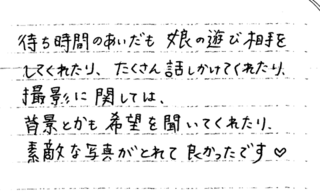 待ち時間のあいだも 娘の遊び相手を
してくれたり、たくさん話しかけてくれたり、
撮影に関しては、
背景とかも希望を聞いてくれたり、
素敵な写真がとれて良かったです♡